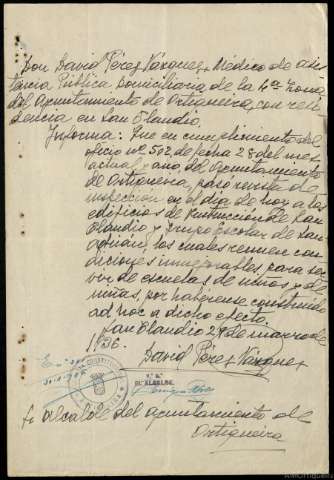 Don David Pérez Vázquez, Médico de asis
tencia Pública Domiciliaria de la 4ª zona
del Ayuntamiento de Ortigueira, con resi
dencia en San Claudio.
Informa: Que en cumplimiento del
oficio nº 502 de fecha 28 del mes
actual y año, del Ayuntamiento
de Ortigueira, paso revista de
inspección en el día de hoy a los
edificios de Instrucción de San
Claudio y Grupo Escolar de San
Adrián, los cuales reunen con
diciones inmejorables, para ser
vir de escuelas de niños y de
niñas, por haberse construido
ad hoc a dicho efecto.
San Claudio 29 de marzo de
1936.
David Pérez Vázquez
Vº Bº
EL ALCALDE,
Sr. alcalde del ayuntamiento de
Ortigueira